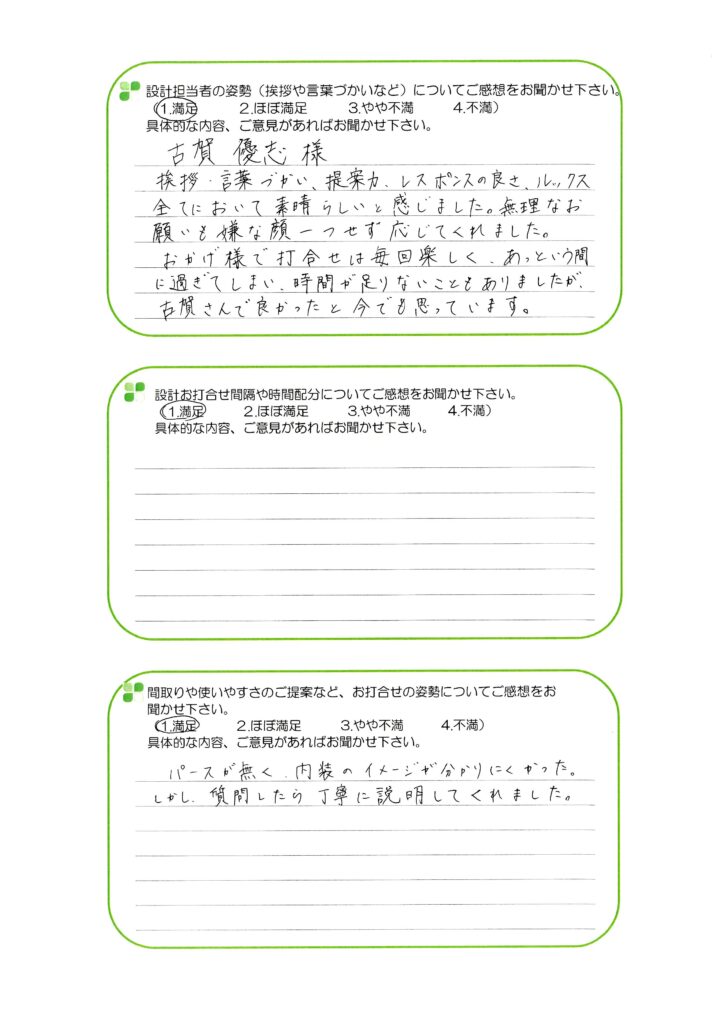 設計担当者の姿勢（挨拶や言葉づかいなど）についてご感想をお聞かせ下さい。
(1.満足 2.ほぼ満足 3.やや不満 4.不満)
具体的な内容、ご意見があればお聞かせ下さい。
古賀 優志 様
挨拶・言葉づかい、提案力、レスポンスの良さ、ルックス
全てにおいて素晴らしいと感じました。無理なお
願いも嫌な顔一つせず応じてくれました。
おかげ様で打合せは毎回楽しく、あっという間
に過ぎてしまい、時間が足りないこともありましたが、
古賀さんで良かったと今でも思っています。
設計お打合せ間隔や時間配分についてご感想をお聞かせ下さい。
(1.満足 2.ほぼ満足 3.やや不満 4.不満)
具体的な内容、ご意見があればお聞かせ下さい。
間取りや使いやすさのご提案など、お打合せの姿勢についてご感想をお
聞かせ下さい。
(1.満足 2.ほぼ満足 3.やや不満 4.不満)
具体的な内容、ご意見があればお聞かせ下さい。
パースが無く、内装のイメージが分かりにくかった。
しかし、質問したら丁寧に説明してくれました。